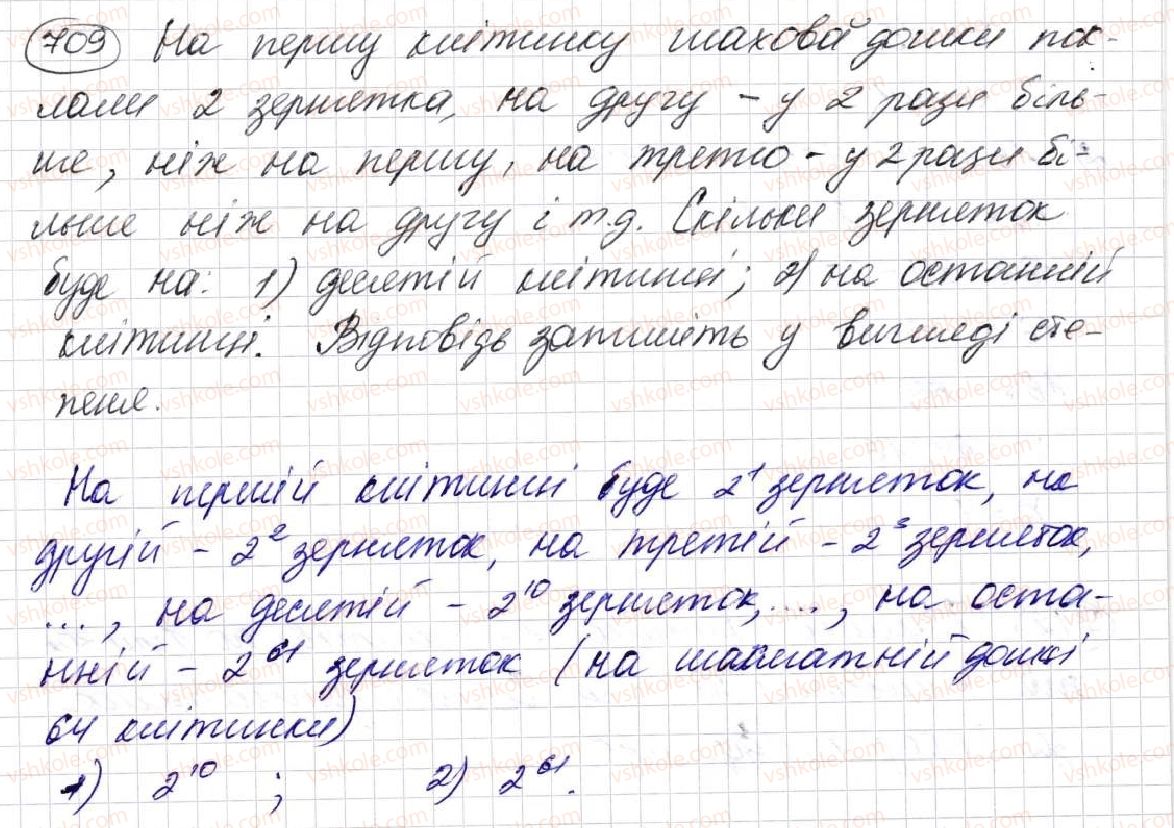 709 На першу клітинку шахової дошки пок-
лали 2 зернятка, на другу - у 2 рази біль-
ше, ніж на першу, на третю - у 2 рази бі-
льше ніж на другу і т.д. Скільки зерняток
буде на: 1) десятій клітинці; 2) на останній
клітинці. Відповідь запишіть у вигляді сте-
пеня.
На першій клітинці буде 2¹ зерняток, на
другій - 2² зерняток, на третій - 2³ зерняток,
..., на десятій - 2¹⁰ зерняток, ...., на оста-
нній - 2⁶⁴ зерняток (на шахматній дошці
64 клітинки)
1) 2¹⁰ ; 2) 2⁶⁴.